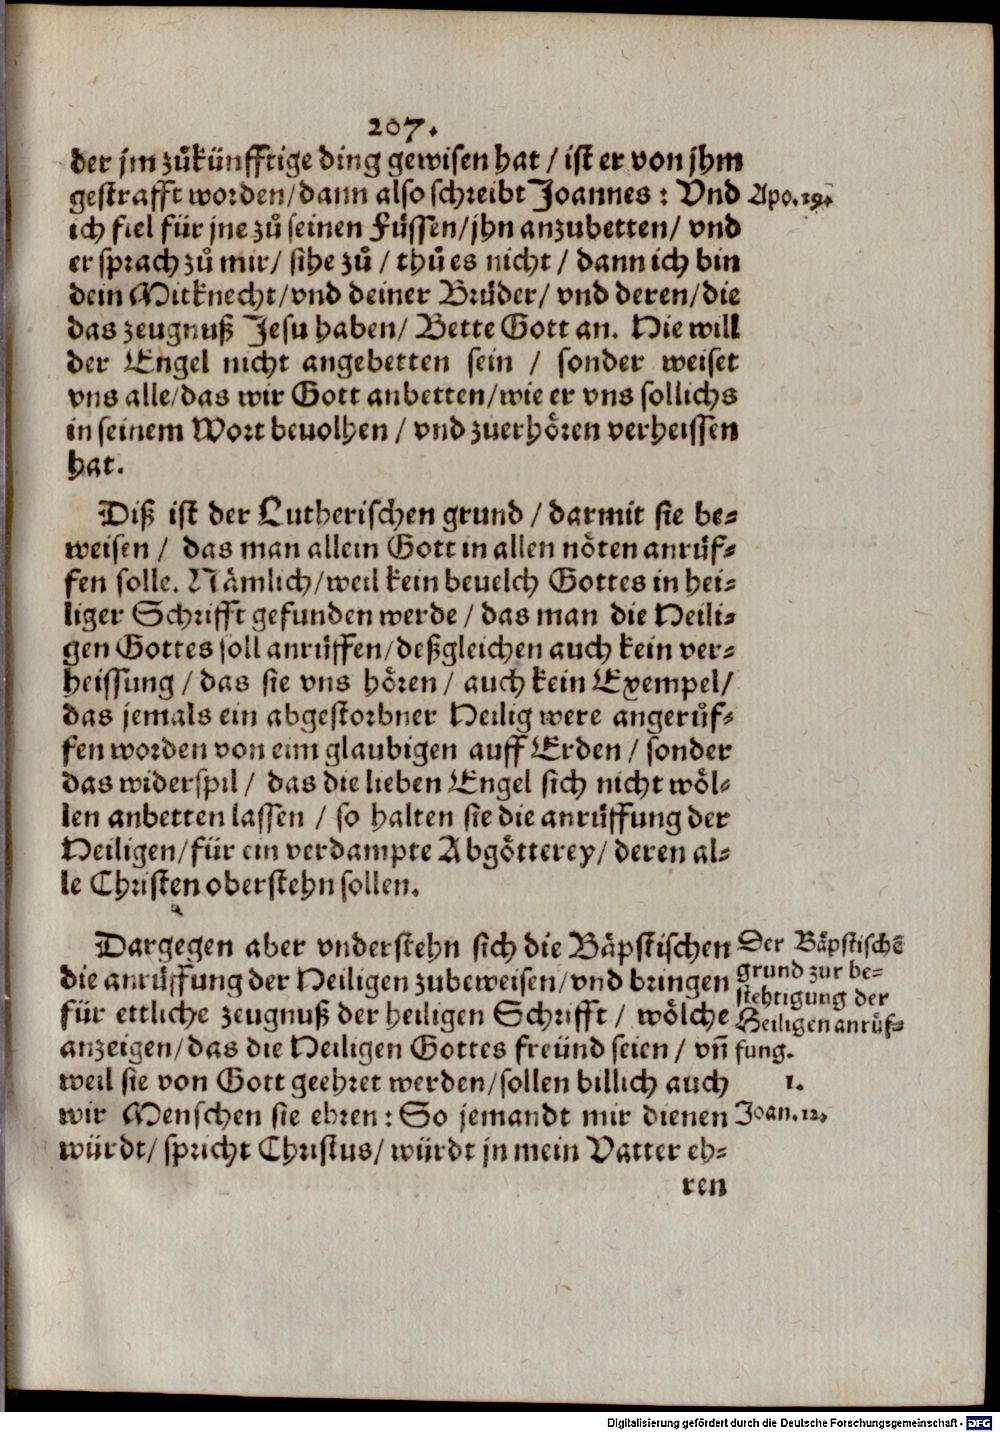 207.
der jm zůkünfftige ding gewisen hat / ist er von jhm
gestrafft worden/dann also schreibt Joannes: Vnd
Apo.19.
ich fiel für jne zů seinen Füssen/jhn anzubetten/ vnd
er sprach zů mir/ sihe zů / thů es nicht / dann ich bin
dein Mitknecht/vnd deiner Brüder/ vnd deren/die
das zeugnuß Jesu haben/ Bette Gott an. Hie will
der Engel nicht angebetten sein / sonder weiset
vns alle/das wir Gott anbetten/wie er vns sollichs
in seinem Wort beuolhen / vnd zuerhören verheissen
hat.
Diß ist der Lutherischen grund / darmit sie be-
weisen / das man allein Gott in allen nöten anrůf-
fen solle. Nämlich/weil kein beuelch Gottes in hei-
liger Schrifft gefunden werde / das man die Heili-
gen Gottes soll anrůffen/deßgleichen auch kein ver-
heissung / das sie vns hören / auch kein Exempel/
das jemals ein abgestorbner Heilig were angerůf-
fen worden von eim glaubigen auff Erden / sonder
das widerspil / das die lieben Engel sich nicht wöl-
len anbetten lassen / so halten sie die anrůffung der
Heiligen/für ein verdampte Abgötterey/ deren al-
le Christen oberstehn sollen.
Dargegen aber vnderstehn sich die Bäpstischen
die anrůffung der Heiligen zubeweisen/vnd bringen
für ettliche zeugnuß der heiligen Schrifft / wölche
anzeigen/das die Heiligen Gottes freünd seien / vn̄
weil sie von Gott geehret werden/sollen billich auch
wir Menschen sie ehren: So jemandt mir dienen
würdt/ spricht Christus/ würdt jn mein Vatter eh-
ren
Der Bäpstischē
grund zur be-
stehtigung der
Heiligen anrůf-
fung.
1.
Joan.12.
Digitalisierung gefördert durch die Deutsche Forschungsgemeinschaft - DFG